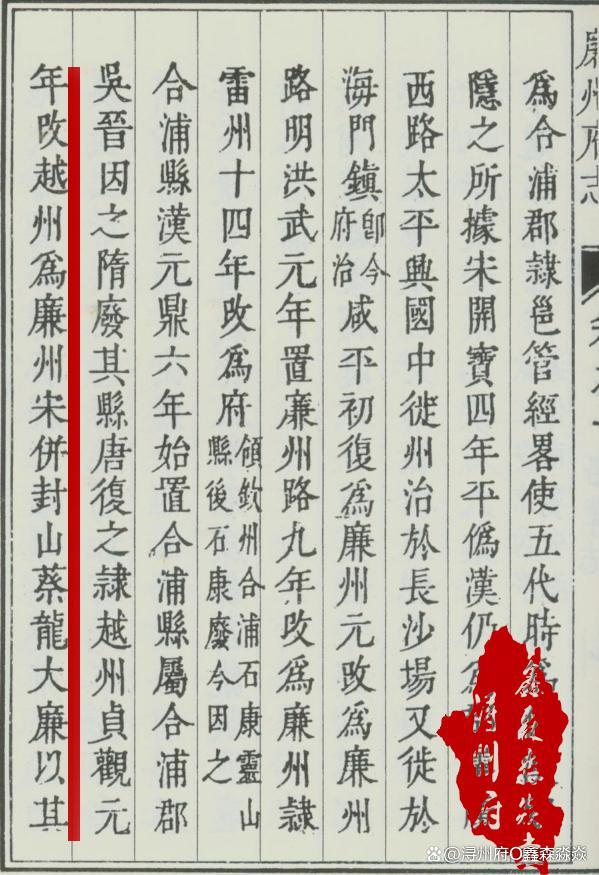 廉州府志
爲合浦郡隷邕管經畧使五代時爲
隱之所據宋開寶四年平僞漢仍爲
西路太平興國中徙州治於長沙場又徙於
海門鎮卽今府治咸平初復爲廉州元改爲廉州
路明洪武元年置廉州路九年改爲廉州隷
雷州十四年改爲府領欽州合浦石康靈山縣後石康廢今因之
合浦縣漢元鼎六年始置合浦縣屬合浦郡
吳晉因之隋廢其縣唐復之隷越州貞觀元
年改越州爲廉州宋併封山蔡龍大廉以其
鑫森淼焱垚
潯州府
@浔州府O鑫森淼焱